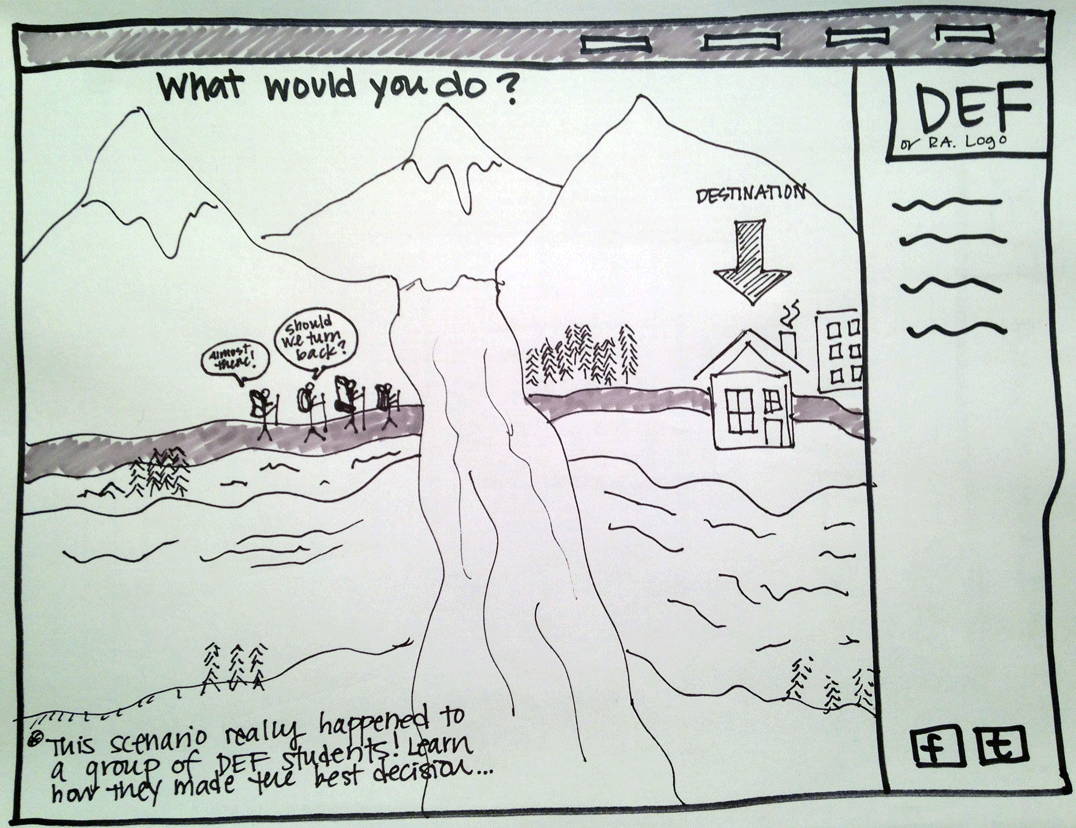 What would you do?
DEF
or RA. Logo
DESTINATION
Almost
there!
Should
we turn
back?
*This scenario really happened to
a group of DEF students! Learn
how they made the best decision...
f
t